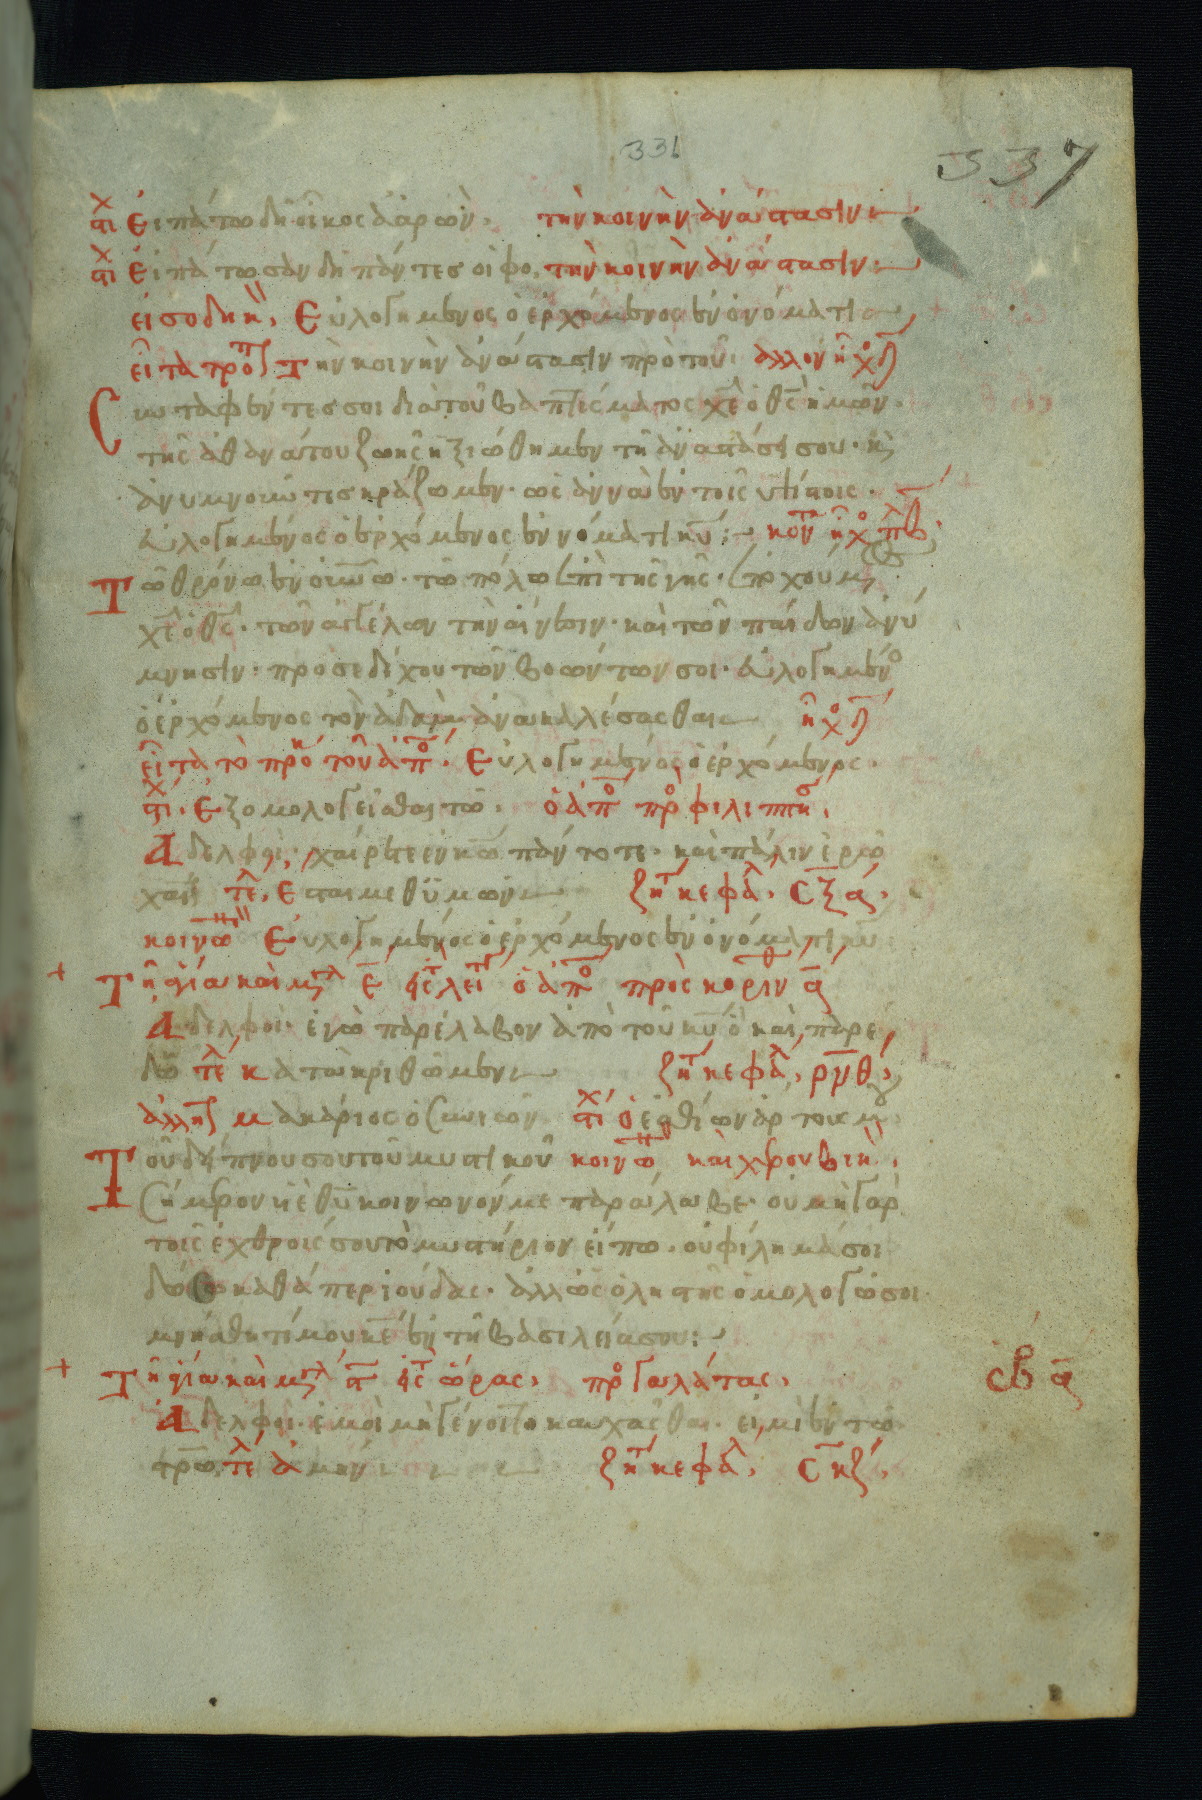 331
337
στιχ Εἰπάτω δὴ οἶκος ἀαρών. τὴν κοινὴν ἀνάστασιν
στιχ Εἰπάτωσαν δὴ πάντες οἱ φο. τὴν κοινὴν ἀνάστασιν
εἰσοδικ, Εὐλογημένος ὁ ἐρχόμενος ἐν ὀνόματι
εἶτα τροπ Τὴν κοινὴν ἀνάστασιν πρὸ τοῦ. ἄλλον ἦχος δ
Συνταφέντες σοι διὰ τοῦ βαπτίσματος χε ὁ θς ἡμῶν.
τῆς ἀθανάτου ζωῆς ἠξιώθημεν τῇ ἀναστάσει σου. κς
ἀνυμνοῦντες κράζομεν. ὡσαννὰ ἐν τοῖς ὑψίστοις.
εὐλογημένος ὁ ἐρχόμενος ἐν ὀνόματι κυ: κοντ ἦχος πλ β.
Τῷ θρόνῳ ἐν οὐνῷ. τῷ πώλῳ ἐπὶ τῆς γῆς. ἐποχούμ
χε ὁ θς. τῶν ἀγγέλων τὴν αἴνεσιν. καὶ τῶν παίδων ἀνύ
μνησιν. προσεδέχου τῶν βοώντων σοι. εὐλογημένο
ὁ ἐρχόμενος τὸν ἀδὰμ ἀνακαλέσασθαι ἦχος δ
εἶτα τὸ προκ τοῦ ἀπο. Εὐλογημένος ὁ ἐρχόμενος.
στιχ. Ἐξομολογεῖσθαι τῷ. ὁ ἀπο προ φιλιππη,
Ἀδελφοί. χαίρετε ἐν κω πάντοτε. καὶ πάλιν ἐρῶ
χαί τε, Εσται μεθ ὑμῶν ζητ κεφα, σξα,
κοινω Εὐλογημένος ὁ ἐρχόμενος ἐν ὀνόματι κυ
+ Τῇ ἁγία καὶ μγλ ε εἰς λειτ ὁ ἀπο πρὸς κορινθ α
Ἀδελφοί. ἐγὼ παρέλαβον ἀπὸ τοῦ κυ ὃ καὶ παρέ
δω τε κατακριθῶμεν ζητ κεφα, ρμθ,
ἀλλη Μακάριος ὁ συνιῶν στιχ ὁ ἐσθίων ἀρτους μου
Τοῦ δείπνου σου τοῦ μυστικοῦ κοινω καὶ χερουβικ,
Σήμερον υἱὲ θυ κοινωνόν με παράλαβε. οὐ μὴ γὰρ
τοῖς ἐχθροῖς σου τὸ μυστήριον εἴπω. οὐ φίλημά σοι
δώσω καθάπερ ἰούδας. ἀλλ ὡς ὁ ληστὴς ὁμολογῶ σοι
μνήσθητί μου κε ἐν τῇ βασιλείᾳ σου:
+ Τῇ ἁγία καὶ μγλ εἰς ὥρας, προ γαλάτας,
Ἀδελφοί. ἐμοὶ μὴ γένοιτο καυχᾶσθαι. εἰ μὶ ἐν τῷ
στρω τε ἀμήν ζητ κεφα, σ κζ,